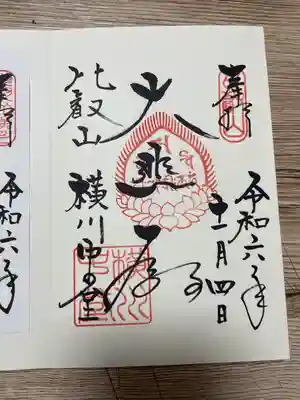 奉拝
令和六年
十一月四日
大悲殿
比叡山
横川中堂
奉拝
令和六年